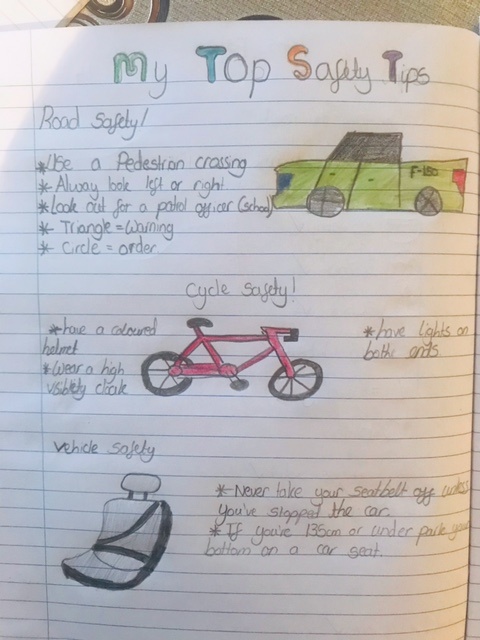 My Top Safety Tips
Road Safety!
*Use a Pedestrian crossing
* Alway look left or right
*Look out for a patrol officer (school)
* Triangle = Warning
* Circle = order
F-150
Cycle Safety!
*have a coloured
helmet
*Wear a high
visiblety cloak
*have lights on
bothe ends
Vehicle Safety
* Never take your seatbelt off unless
you've stopped the car.
* If you've 135cm or under park your
bottom on a car seat.